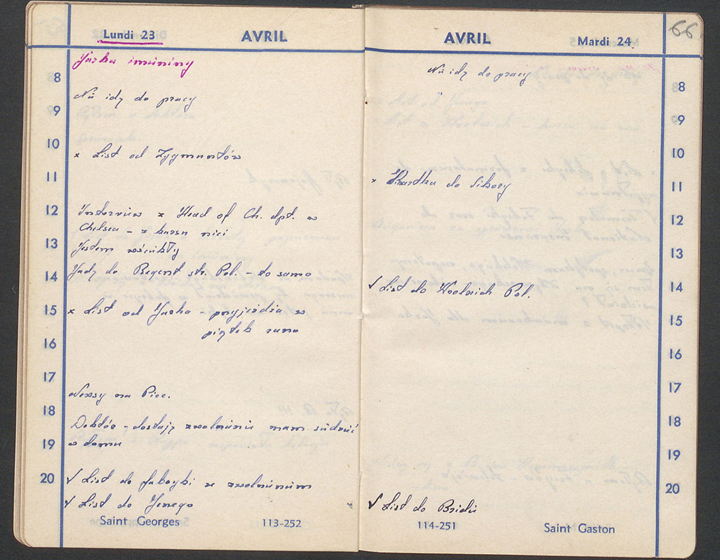 Lundi 23
AVRIL
Jurka imieniny
8
Nie idę do pracy
9
10
x List od Zygmuntów
11
12
Interview z Head of Ch. dpt. w
Chelsea – z kursu nici
13
Jestem wściekły
14
Jadę do Regent str. Pol. – to samo
15
x List od Jurka – przyjeżdża w
piątek rano
16
17
Newsy na Picc.
18
Doktór – dostaję zwolnienie mam siedzieć
19
w domu
20
√ List do fabryki ze zwolnieniem
√ List do Jerzego
Saint Georges
113-252
AVRIL
Mardi 24
66
Nie idę do pracy
8
9
10
11
x Kartka do
12
13
14
√ List do Woolwich Pol.
15
16
17
18
19
20
√ List do
114-251
Saint Gaston